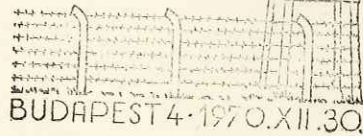 BUDAPEST 4·1970.XII.30